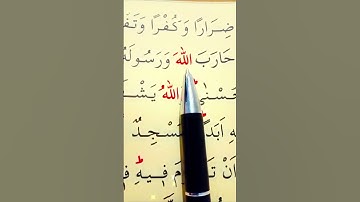 ضِرَارًا وَّكُفْرًا وَّتَفْ
حَارَبَ اللهَ وَرَسُوْلَهٗ
حُسْنٰى اللهُ يَشْ
هِ اَبَدًا مَسْجِدٌ
اَنْ فِيْهِ